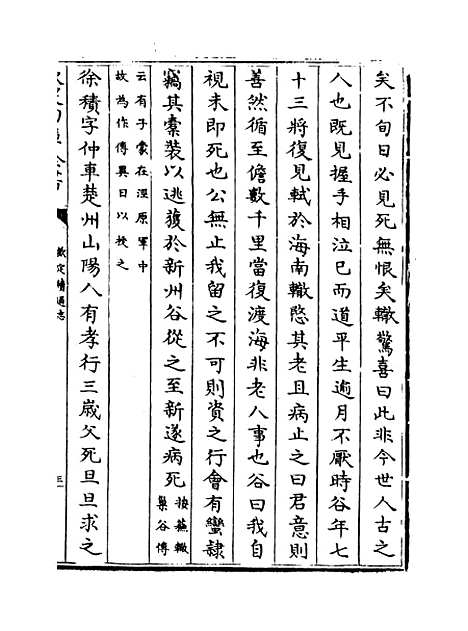 矣不旬日必見死無恨矣轍驚喜曰此非今世人古之
人也既見握手相泣已而道平生逾月不厭時谷年七
十三將復見軾於海南轍愍其老且病止之曰君意則
善然循至儋數千里當復渡海非老人事也谷曰我自
視未即死也公無止我留之不可則資之行會有蠻隸
竊其橐裝以逃獲於新州谷從之至新遂病死按蘇轍巢谷傳
云有子蒙在涇原軍中
故為作傳異日以授之
徐積字仲車楚州山陽人有孝行三歲父死旦旦求之
欽定續通志